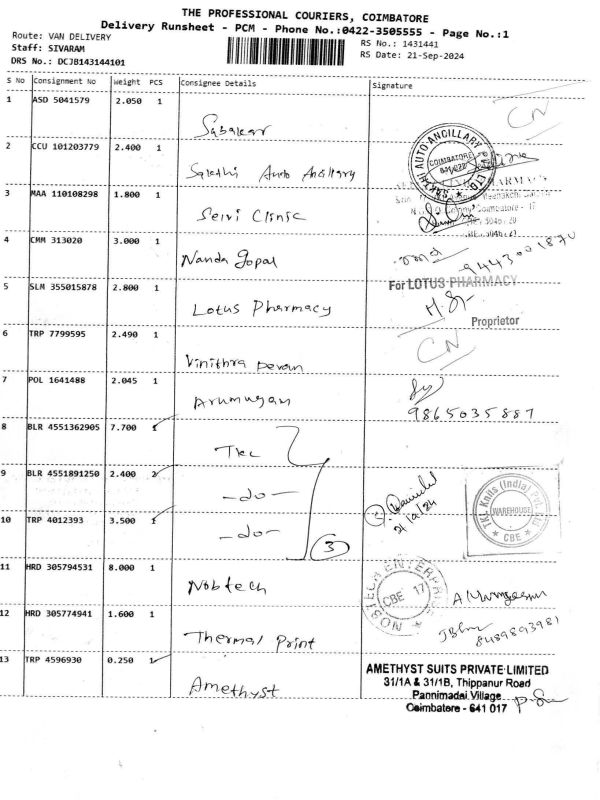 THE PROFESSIONAL COURIERS, COIMBATORE
Delivery Runsheet - PCM - Phone No.:0422-3505555 - Page No.:1
Route: VAN DELIVERY
Staff: SIVARAM
DRS No.: DCJB143144101
RS No.: 1431441
RS Date: 21-Sep-2024
S No Consignment No Weight PCS Consignee Details Signature
1 ASD 5041579 2.050 1 Sabakar CN
2 CCU 101203779 2.400 1 Sakthi Auto Ancillary
SAKTHI AUTO ANCILLARY
COIMBATORE
3 MAA 110108298 1.800 1 Selvi Clinic
4 CMM 313020 3.000 1 Nanda Gopal
9443001870
5 SLM 355015878 2.800 1 Lotus Pharmacy
For LOTUS PHARMACY
Proprietor
6 TRP 7799595 2.490 1 Vinithra Devan CN
7 POL 1641488 2.045 1 Arumugan
9865035887
8 BLR 4551362905 7.700 1 TKL
9 BLR 4551891250 2.400 2 -do-
10 TRP 4012393 3.500 1 -do- 3
21/9/24
TKL Knits (India) Pvt. Ltd
WAREHOUSE
CBE
11 HRD 305794531 8.000 1 Nobtech
NOBTECH ENTERPRISE
CBE 17
12 HRD 305774941 1.600 1 Thermal Print
8489893981
13 TRP 4596930 0.250 1 Amethyst
AMETHYST SUITS PRIVATE LIMITED
31/1A & 31/1B, Thippanur Road
Pannimadai Village
Coimbatore - 641 017